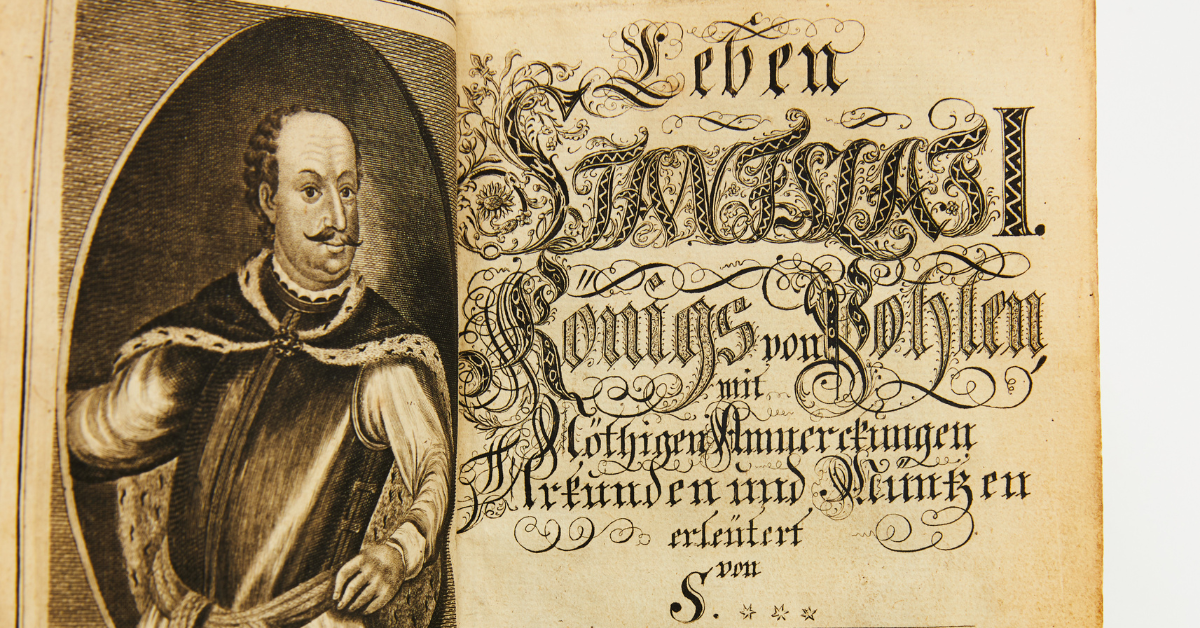 Leben
STANISLAI I.
Königs von Pohlen,
mit
Nöthigen Anmerckungen
Urkunden und Müntzen
erleütert
von
S. * * *